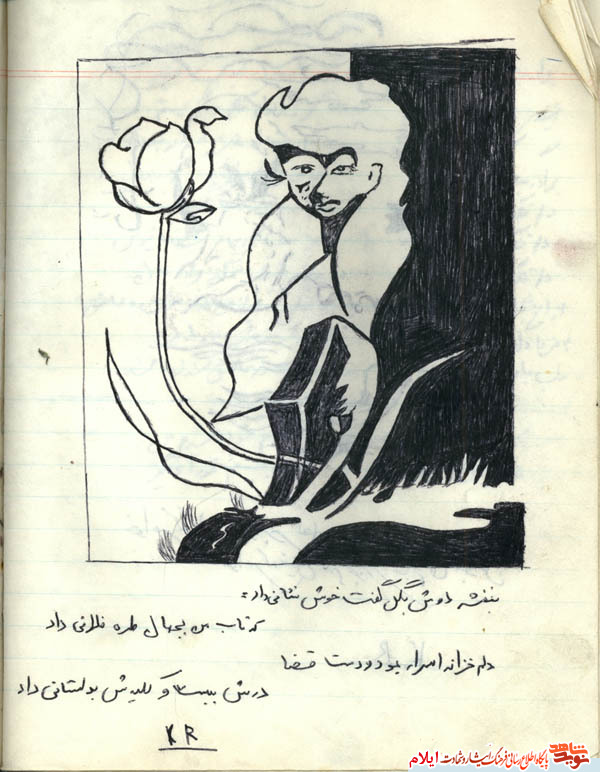 بنفشه دوش بگل گفت خوش نشانی داد:
که تاب من بجهان طره فلانی داد
دلم خزانه اسرار بود و دست قضا
درش ببست و کلیدش بدلستانی داد
K R
نوید شاهد
پایگاه اطلاع رسانی فرهنگ ایثار و شهادت ایلام